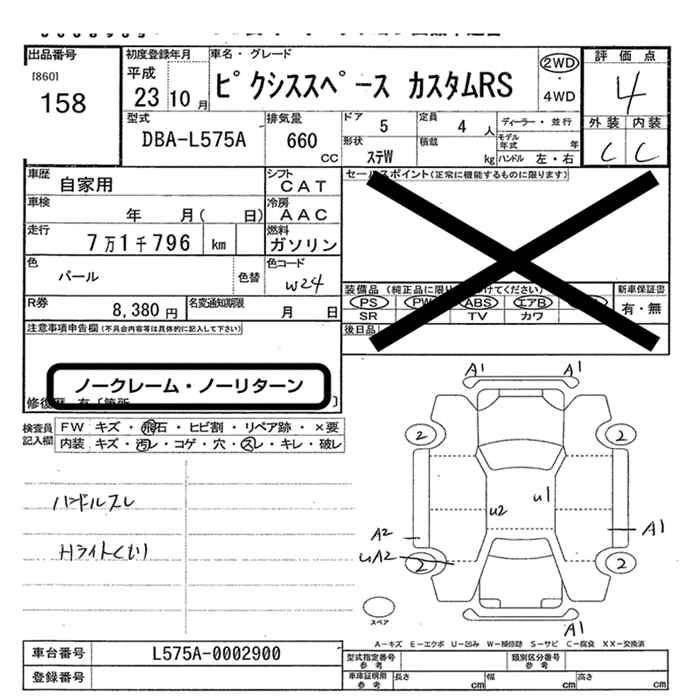 出品番号
[860]
158
初度登録年月
平成
23 10 月
車名・グレード
ピクシススペース カスタムRS
2WD
・
4WD
評価点
4
外装 内装
C C
型式
DBA-L575A
排気量
660 CC
ドア 5
定員 4 人
ディーラー・並行
形状 ステW
積載 kg
モデル年式 年
ハンドル 左・右
車歴 自家用
シフト CAT
セールスポイント(正常に機能するものに限ります)
車検 年 月( 日)
冷房 AAC
走行 7万1千796 km
燃料 ガソリン
色 パール 色替
色コード W24
装備品 (純正品に限り けてください)
新車保証書
PS PW ABS エアB
有・無
SR TV カワ
R券 8,380 円
名変通知期限 月 日
後日品
注意事項申告欄 (不具合内容等は具体的に記入して下さい)
ノークレーム・ノーリターン
検査員記入欄
FW キズ・飛石・ヒビ割・リペア跡・×要
内装 キズ・汚レ・コゲ・穴・スレ・キレ・破レ
ハンドルスレ
Hライトくもり
A1
A1
2
2
U1
U2
A2
A1
UA2
2
2
スペア
A1
A-キズ E-エクボ U-凹み W-補修跡 S-サビ C-腐食 XX-交換済
車台番号 L575A-0002900
型式指定番号 参考
類別区分番号 参考
登録番号
車庫証明用 参考
長さ cm
幅 cm
高さ cm